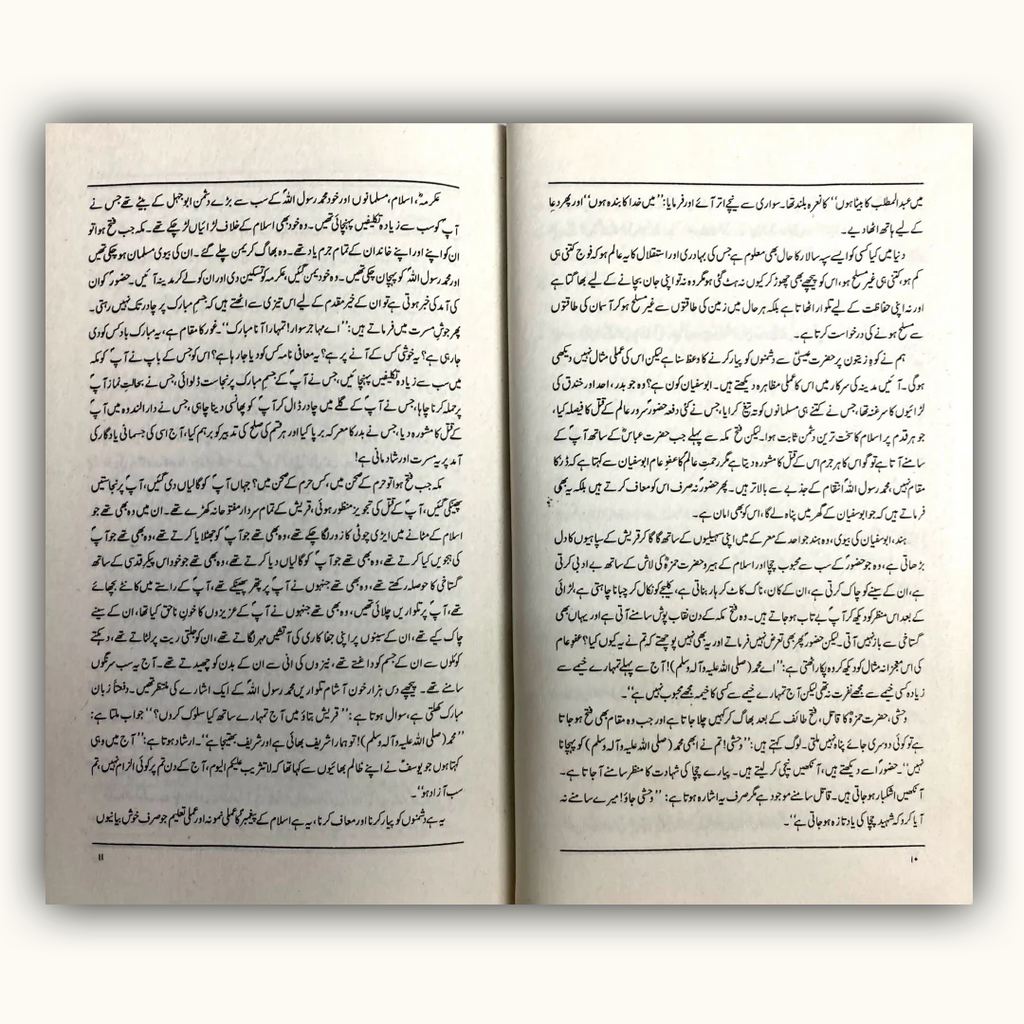 میں عبدالمطلب کا بیٹا ہوں’’ کا نعرہ بلند تھا۔ سواری سے نیچے اتر آئے اور فرمایا: ’’میں خدا کا بندہ ہوں‘‘ اور پھر دعا
کے لیے ہاتھ اٹھا دیے۔
دنیا میں کیا کسی کو ایسے سپہ سالار کا حال بھی معلوم ہے جس کی بہادری اور استقلال کا یہ عالم ہو کہ فوج کتنی ہی
کم ہو، کتنی ہی غیر مسلح ہو، اس کو پیچھے بھی چھوڑ کر کیوں نہ ہٹ گئی ہو مگر وہ نہ تو اپنی جان بچانے کے لیے بھاگتا ہے
اور نہ اپنی حفاظت کے لیے تلوار اٹھاتا ہے بلکہ ہر حال میں زمین کی طاقتوں سے غیر مسلح ہو کر آسمان کی طاقتوں
سے مسلح ہونے کی درخواست کرتا ہے۔
ہم نے کوہِ زیتون پر حضرت عیسیٰؑ سے دشمنوں کو پیار کرنے کا وعظ سنا ہے لیکن اس کی عملی مثال نہیں دیکھی
ہوگی۔ آئیں مدینہ کی سرکار میں اس کا عملی مظاہرہ دیکھتے ہیں۔ ابوسفیان کون ہے؟ وہ جو بدر، احد اور خندق کی
لڑائیوں کا سرغنہ تھا، جس نے کتنے ہی مسلمانوں کو تہ تیغ کرایا، جس نے کئی دفعہ حضورؐ سرورِ عالم کے قتل کا فیصلہ کیا،
جو ہر قدم پر اسلام کا سخت ترین دشمن ثابت ہوا۔ لیکن فتح مکہ سے پہلے جب حضرت عباسؓ کے ساتھ آپؐ کے
سامنے آتا ہے تو گو اس کا ہر جرم اس کے قتل کا مشورہ دیتا ہے مگر رحمتِ عالمؐ کا عفوِ عام ابوسفیان سے کہتا ہے کہ ڈر کا
مقام نہیں، محمد رسول اللہؐ انتقام کے جذبے سے بالاتر ہیں۔ پھر حضورؐ نہ صرف اس کو معاف کرتے ہیں بلکہ یہ بھی
فرماتے ہیں کہ جو ابوسفیان کے گھر میں پناہ لے گا، اس کو بھی امان ہے۔
ہند، ابوسفیان کی بیوی، وہ ہند جو احد کے معرکے میں اپنی سہیلیوں کے ساتھ گا گا کر قریش کے سپاہیوں کا دل
بڑھاتی ہے، وہ جو حضورؐ کے سب سے محبوب چچا اور اسلام کے ہیرو حضرت حمزہؓ کی لاش کے ساتھ بے ادبی کرتی
ہے، ان کے سینے کو چاک کرتی ہے، ان کے کان، ناک کاٹ کر ہار بناتی ہے، کلیجے کو نکال کر چبانا چاہتی ہے، لڑائی
کے بعد اس منظر کو دیکھ کر آپؐ بے تاب ہو جاتے ہیں۔ وہ فتح مکہ کے دن نقاب پوش سامنے آتی ہے اور یہاں بھی
گستاخی سے باز نہیں آتی۔ لیکن حضورؐ پھر بھی تعرض نہیں فرماتے اور یہ بھی نہیں پوچھتے کہ تم نے یہ کیوں کیا؟ عفوِ عام
کی اس معجزانہ مثال کو دیکھ کر وہ پکار اٹھتی ہے: ’’اے محمد (صلی اللہ علیہ وآلہ وسلم)! آج سے پہلے تمہارے خیمے سے
زیادہ کسی خیمے سے مجھے نفرت نہ تھی لیکن آج تمہارے خیمے سے کسی کا خیمہ مجھے محبوب نہیں ہے‘‘۔
وحشی، حضرت حمزہؓ کا قاتل، فتح طائف کے بعد بھاگ کر کہیں چلا جاتا ہے اور جب وہ مقام بھی فتح ہو جاتا
ہے تو کوئی دوسری جائے پناہ نہیں ملتی۔ لوگ کہتے ہیں: ’’وحشی! تم نے ابھی محمد (صلی اللہ علیہ وآلہ وسلم) کو پہچانا
نہیں‘‘۔ حضورؐ اسے دیکھتے ہیں، آنکھیں نیچی کر لیتے ہیں۔ پیارے چچا کی شہادت کا منظر سامنے آ جاتا ہے۔
آنکھیں اشکبار ہو جاتی ہیں۔ قاتل سامنے موجود ہے مگر صرف یہ اشارہ ہوتا ہے: ’’وحشی جاؤ! میرے سامنے نہ
آیا کرو کہ شہید چچا کی یاد تازہ ہو جاتی ہے‘‘۔
۱۰
عکرمہؓ، اسلام، مسلمانوں اور خود محمد رسول اللہؐ کے سب سے بڑے دشمن ابوجہل کے بیٹے تھے جس نے
آپؐ کو سب سے زیادہ تکلیفیں پہنچائی تھیں۔ وہ خود بھی اسلام کے خلاف لڑائیاں لڑ چکے تھے۔ مکہ جب فتح ہوا تو
ان کو اپنے اور اپنے خاندان کے تمام جرم یاد تھے۔ وہ بھاگ کر یمن چلے گئے۔ ان کی بیوی مسلمان ہو چکی تھیں
اور محمد رسول اللہؐ کو پہچان چکی تھیں۔ وہ خود یمن گئیں، عکرمہ کو تسکین دی اور ان کو لے کر مدینہ آئیں۔ حضورؐ کو ان
کی آمد کی خبر ہوتی ہے تو ان کے خیر مقدم کے لیے اس تیزی سے اٹھتے ہیں کہ جسمِ مبارک پر چادر تک نہیں رہتی۔
پھر جوشِ مسرت میں فرماتے ہیں: ’’اے مہاجر سوار! تمہارا آنا مبارک‘‘۔ غور کا مقام ہے، یہ مبارک باد کس کو دی
جا رہی ہے؟ یہ خوشی کس کے آنے پر ہے؟ یہ معافی نامہ کس کو دیا جا رہا ہے؟ اس کو جس کے باپ نے آپؐ کو مکہ
میں سب سے زیادہ تکلیفیں پہنچائیں، جس نے آپؐ کے جسمِ مبارک پر نجاست ڈلوائی، جس نے بحالتِ نماز آپؐ
پر حملہ کرنا چاہا، جس نے آپؐ کے گلے میں چادر ڈال کر آپؐ کو پھانسی دینا چاہی، جس نے دارالندوہ میں آپؐ
کے قتل کا مشورہ دیا، جس نے بدر کا معرکہ برپا کیا اور ہر قسم کی صلح کی تدبیر کو برہم کیا، آج اسی کی جسمانی یادگار کی
آمد پر یہ مسرت اور شادمانی ہے!
مکہ جب فتح ہوا تو حرم کے صحن میں، کس حرم کے صحن میں؟ جہاں آپؐ کو گالیاں دی گئیں، آپؐ پر نجاستیں
پھینکی گئیں، آپؐ کے قتل کی تجویز منظور ہوئی، قریش کے تمام سردار مفتوحانہ کھڑے تھے۔ ان میں وہ بھی تھے جو
اسلام کے مٹانے میں ایڑی چوٹی کا زور لگا چکے تھے، وہ بھی تھے جو آپؐ کو جھٹلایا کرتے تھے، وہ بھی تھے جو آپؐ
کی ہجویں کیا کرتے تھے، وہ بھی تھے جو آپؐ کو گالیاں دیا کرتے تھے، وہ بھی تھے جو خود اس پیکرِ قدسی کے ساتھ
گستاخی کا حوصلہ رکھتے تھے، وہ بھی تھے جنہوں نے آپؐ پر پتھر پھینکے تھے، آپؐ کے راستے میں کانٹے بچھائے
تھے، آپؐ پر تلواریں چلائی تھیں، وہ بھی تھے جنہوں نے آپؐ کے عزیزوں کا خونِ ناحق کیا تھا، ان کے سینے
چاک کیے تھے، ان کے سینوں پر اپنی جفاکاری کی آتشیں مہر لگاتے تھے، ان کو جلتی ریت پر لٹاتے تھے، دہکتے
کوئلوں سے ان کے جسم کو داغتے تھے، نیزوں کی انی سے ان کے بدن کو چھیدتے تھے۔ آج یہ سب سرنگوں
سامنے تھے۔ پیچھے دس ہزار خون آشام تلواریں محمد رسول اللہؐ کے ایک اشارے کی منتظر تھیں۔ دفعتاً زبان
مبارک کھلتی ہے، سوال ہوتا ہے: ’’قریش بتاؤ میں آج تمہارے ساتھ کیا سلوک کروں؟‘‘ جواب ملتا ہے:
’’محمد (صلی اللہ علیہ وآلہ وسلم)! تو ہمارا شریف بھائی ہے اور شریف بھتیجا ہے‘‘۔ ارشاد ہوتا ہے: ’’آج میں وہی
کہتا ہوں جو یوسفؑ نے اپنے ظالم بھائیوں سے کہا تھا کہ لا تثریب علیکم الیوم، آج کے دن تم پر کوئی الزام نہیں، تم
سب آزاد ہو‘‘۔
یہ ہے دشمنوں کو پیار کرنا اور معاف کرنا، یہ ہے اسلام کے پیغمبر کا عملی نمونہ اور عملی تعلیم جو صرف خوش بیانیوں
۱۱